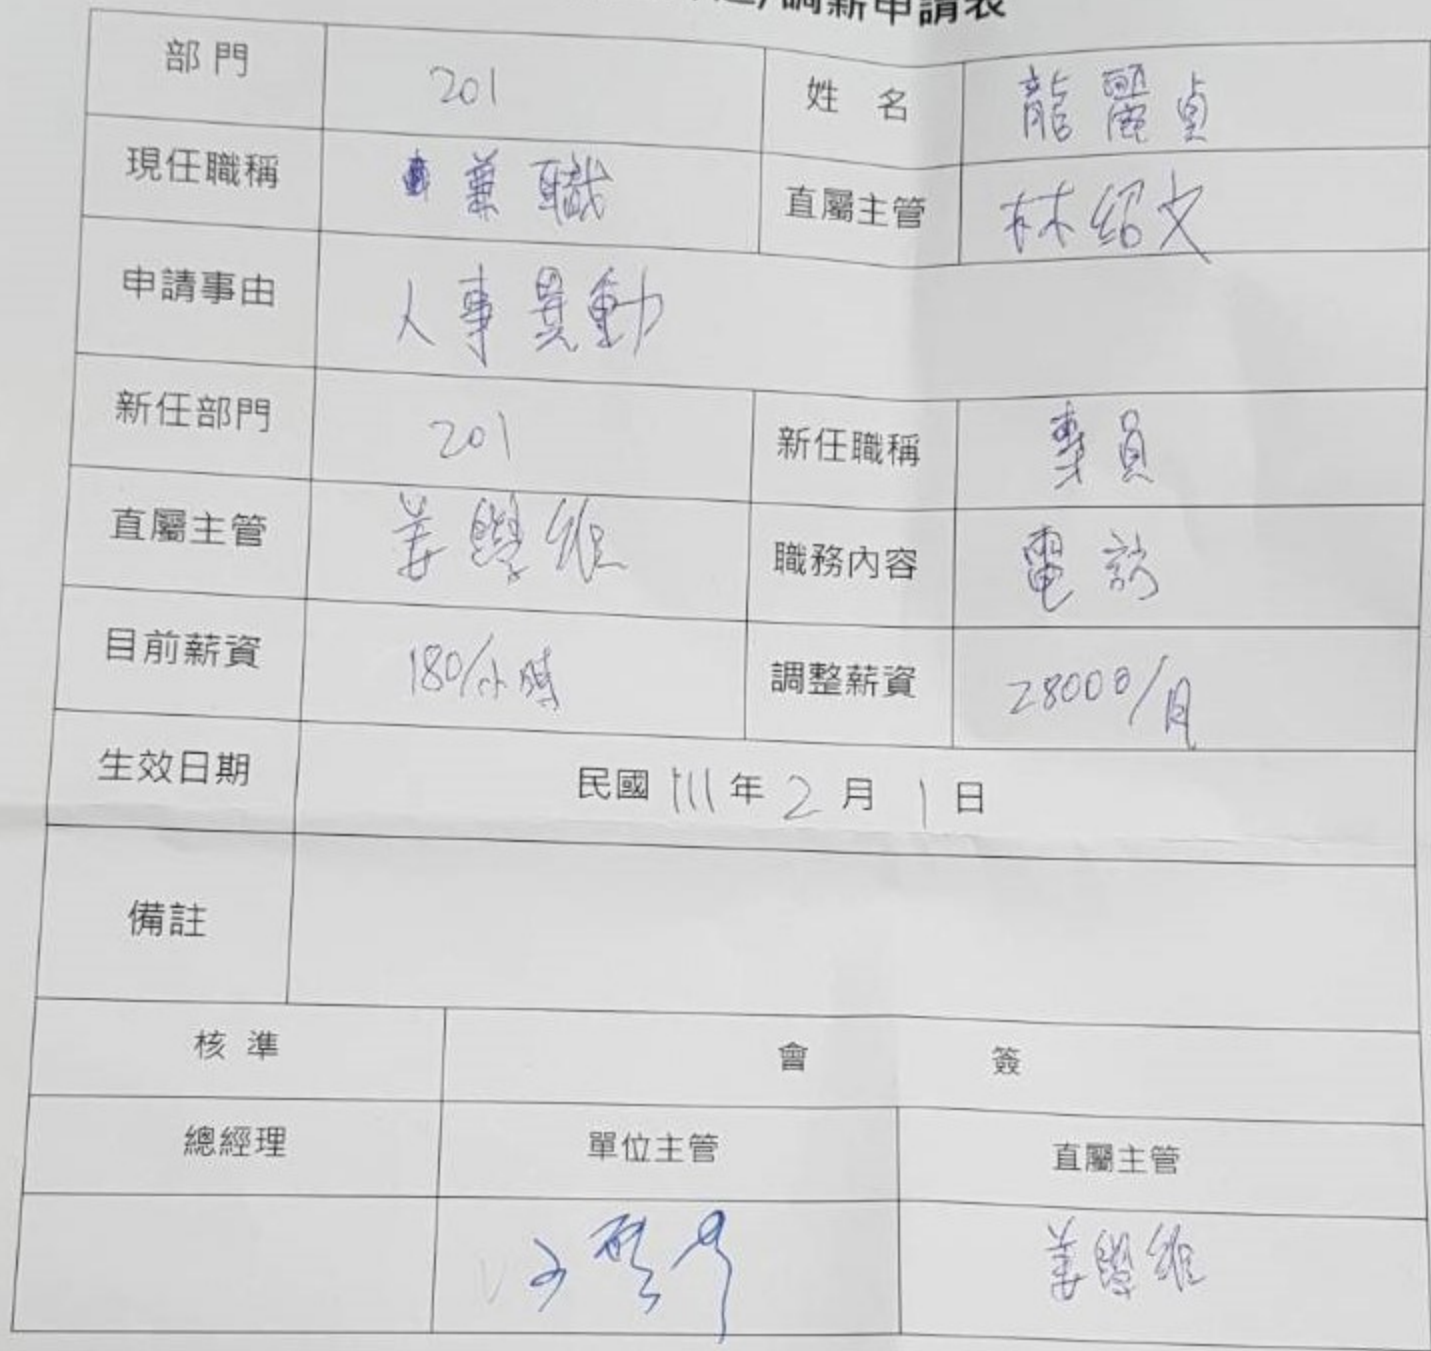 調薪申請表
部門 201 姓名 龍麗貞
現任職稱 兼職 直屬主管 林紹文
申請事由 人事異動
新任部門 201 新任職稱 專員
直屬主管 姜學維 職務內容 電訪
目前薪資 180/小時 調整薪資 28000/月
生效日期 民國 111 年 2 月 1 日
備註
核準 會簽
總經理 單位主管 直屬主管
姜學維